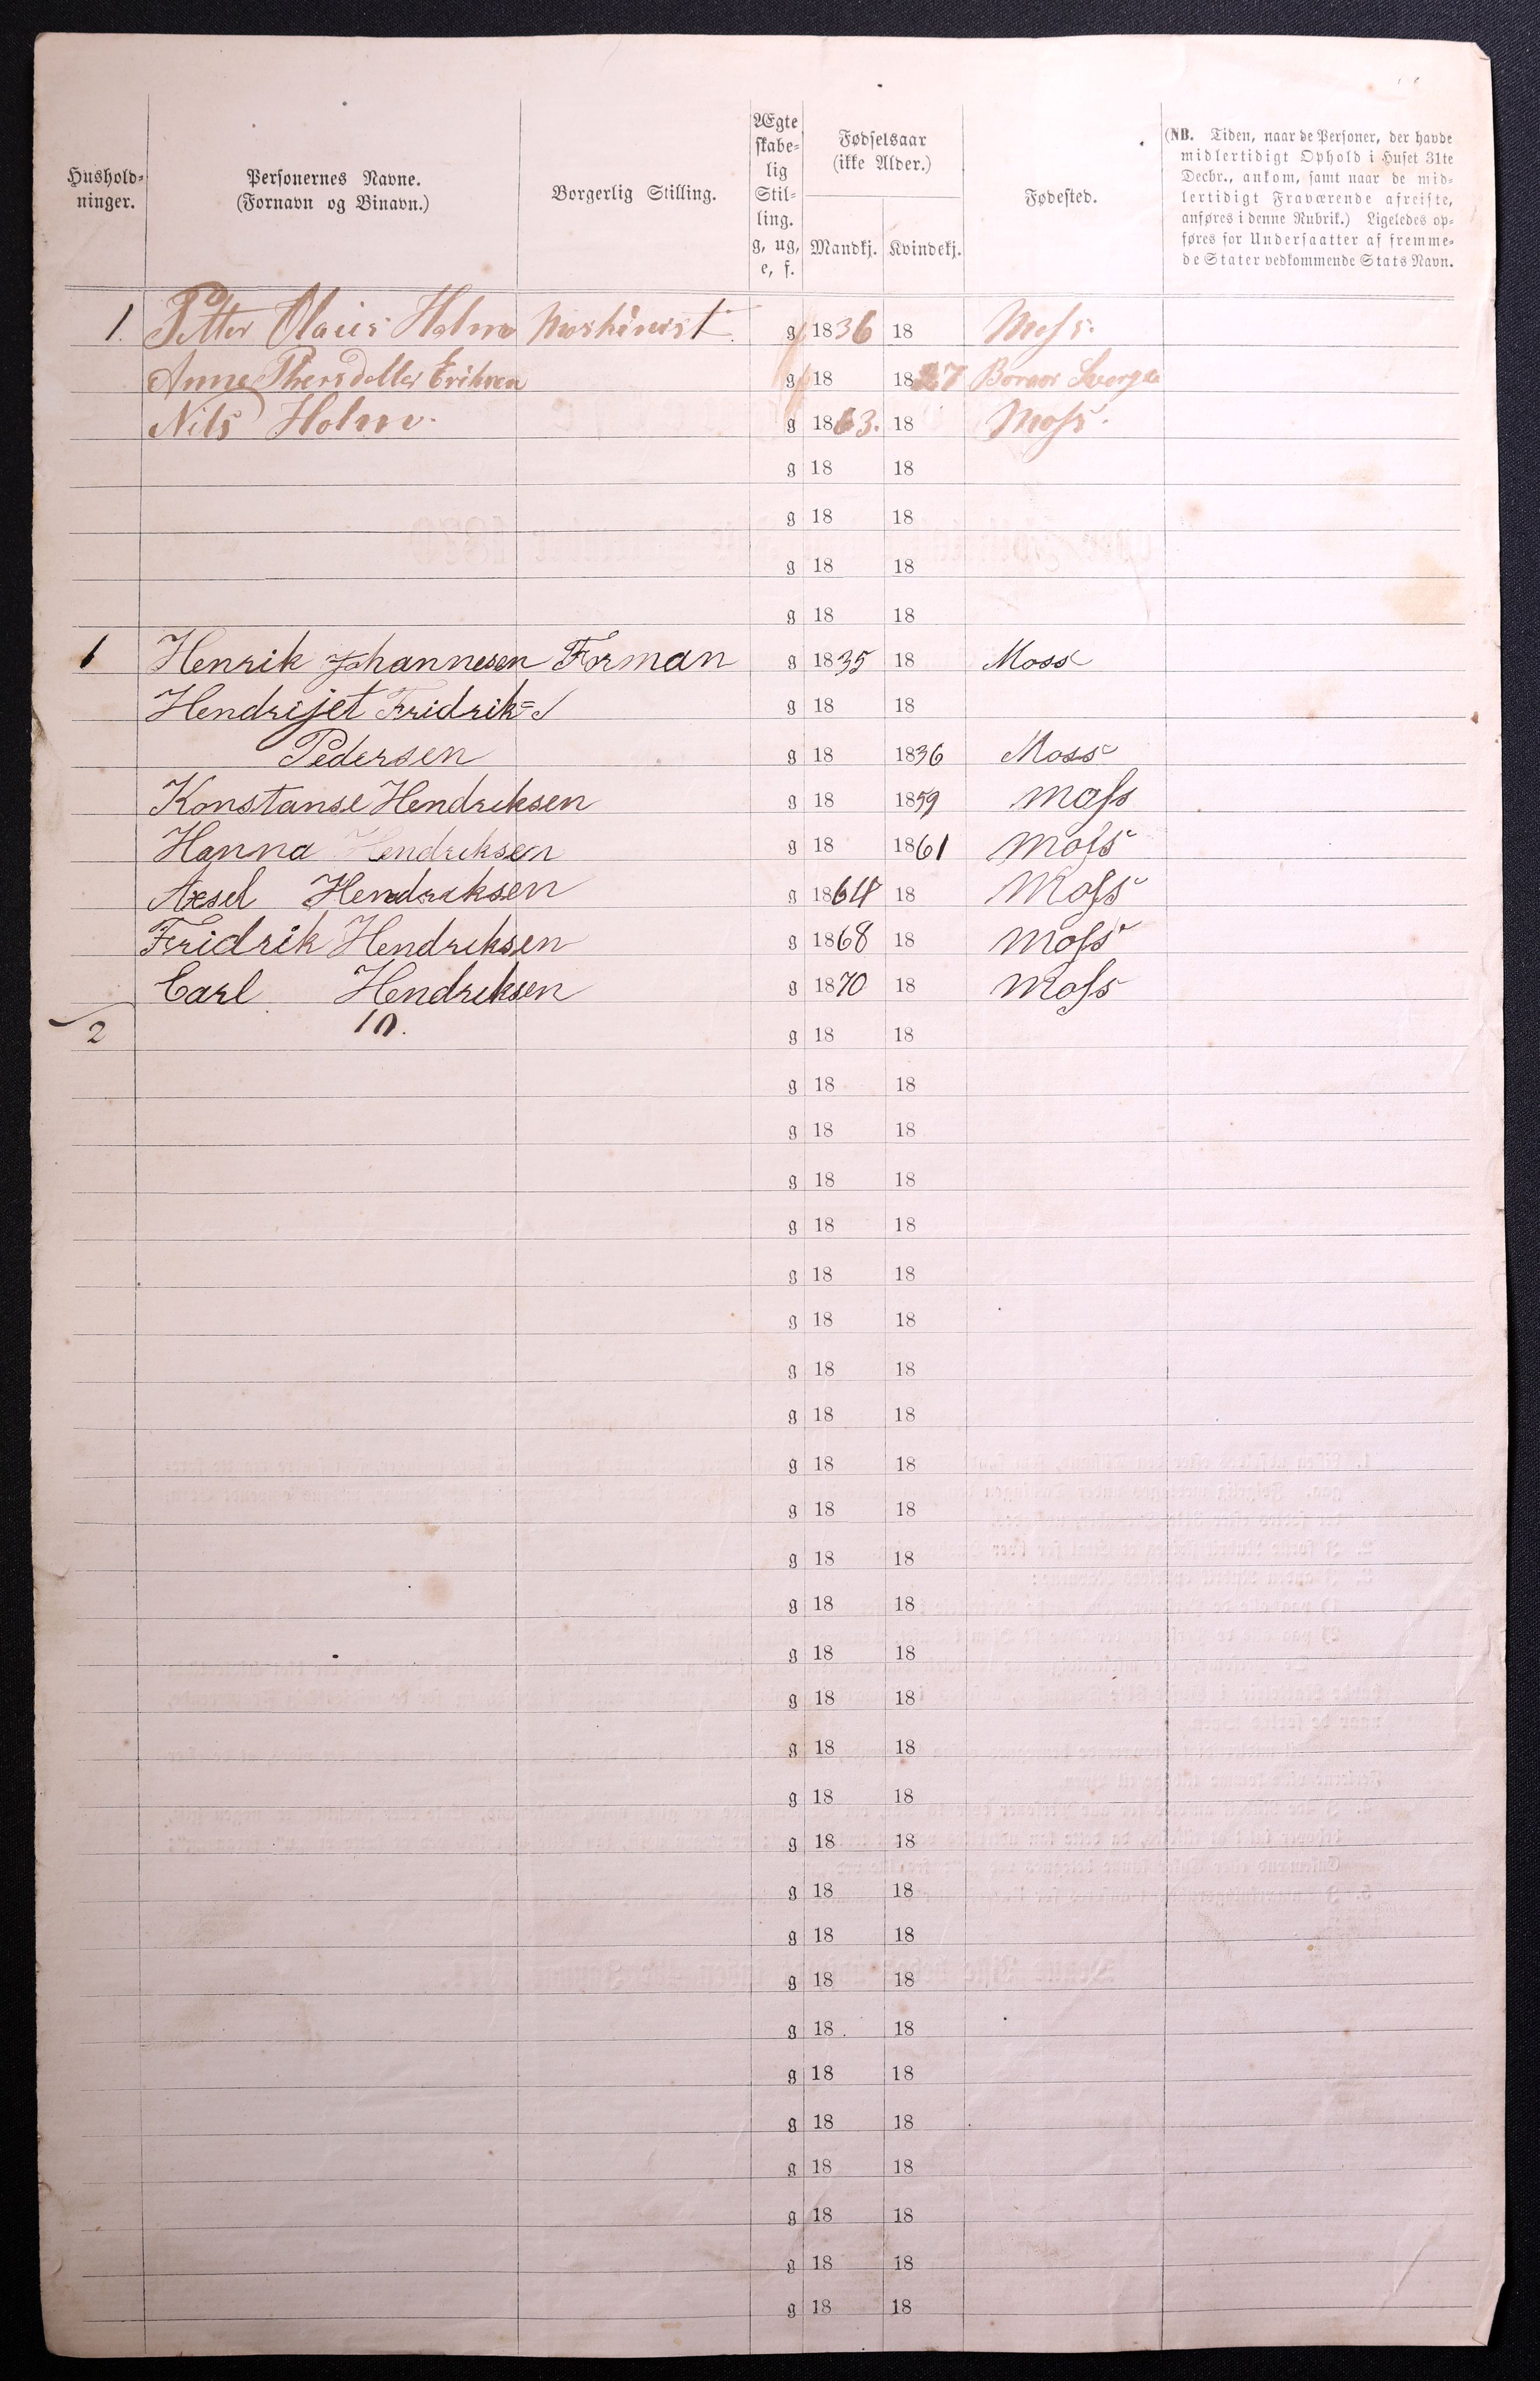 Hushold-
ninger.
Personernes Navne.
(Fornavn og Binavn.)
Borgerlig Stilling.
Ægte
skabe-
lig
Stil-
ling.
g, ug,
e, f.
Fødselsaar
(ikke Alder.)
Mandkj. Kvindekj.
Fødested.
(NB. Tiden, naar de Personer, der havde
midlertidigt Ophold i Huset 31te
Decbr., ankom, samt naar de mid-
lertidigt Fraværende afreiste,
anføres i denne Rubrik.) Ligeledes op-
føres for Undersaatter af fremme-
de Stater vedkommende Stats Navn.
1. Petter Olaus Holm Maskinist g 1836 18 Moss.
Anne Eriksen g 18 1827 Sverge
Nils Holm. g 1863. 18 Moss.
g 18 18
g 18 18
g 18 18
g 18 18
1 Henrik Johannesen Forman g 1835 18 Moss
Hendrijet Fridrik= g 18 18
Pedersen g 18 1836 Moss
Konstanse Hendriksen g 18 1859 Moss
Hanna Hendriksen g 18 1861 Moss
Axsel Hendriksen g 1864 18 Moss
Fridrik Hendriksen g 1868 18 Moss
Carl Hendriksen g 1870 18 Moss
2 10. g 18 18
g 18 18
g 18 18
g 18 18
g 18 18
g 18 18
g 18 18
g 18 18
g 18 18
g 18 18
g 18 18
g 18 18
g 18 18
g 18 18
g 18 18
g 18 18
g 18 18
g 18 18
g 18 18
g 18 18
g 18 18
g 18 18
g 18 18
g 18 18
g 18 18
g 18 18
g 18 18
g 18 18